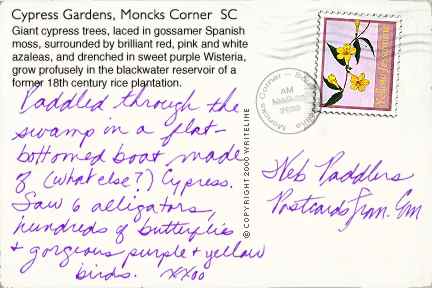 Cypress Gardens, Moncks Corner SC
Giant cypress trees, laced in gossamer Spanish
moss, surrounded by brilliant red, pink and white
azaleas, and drenched in sweet purple Wisteria,
grow profusely in the blackwater reservoir of a
former 18th century rice plantation.
Paddled through the
swamp in a flat-
bottomed boat made
of (what else?) Cypress.
Saw 6 alligators,
hundreds of butterflies
+ gorgeous purple + yellow
birds. xxoo
© COPYRIGHT 2000 WRITELINE
Moncks Corner
AM
2000
Yellow Jessamine
Web Paddlers
Postcardsfrom.com